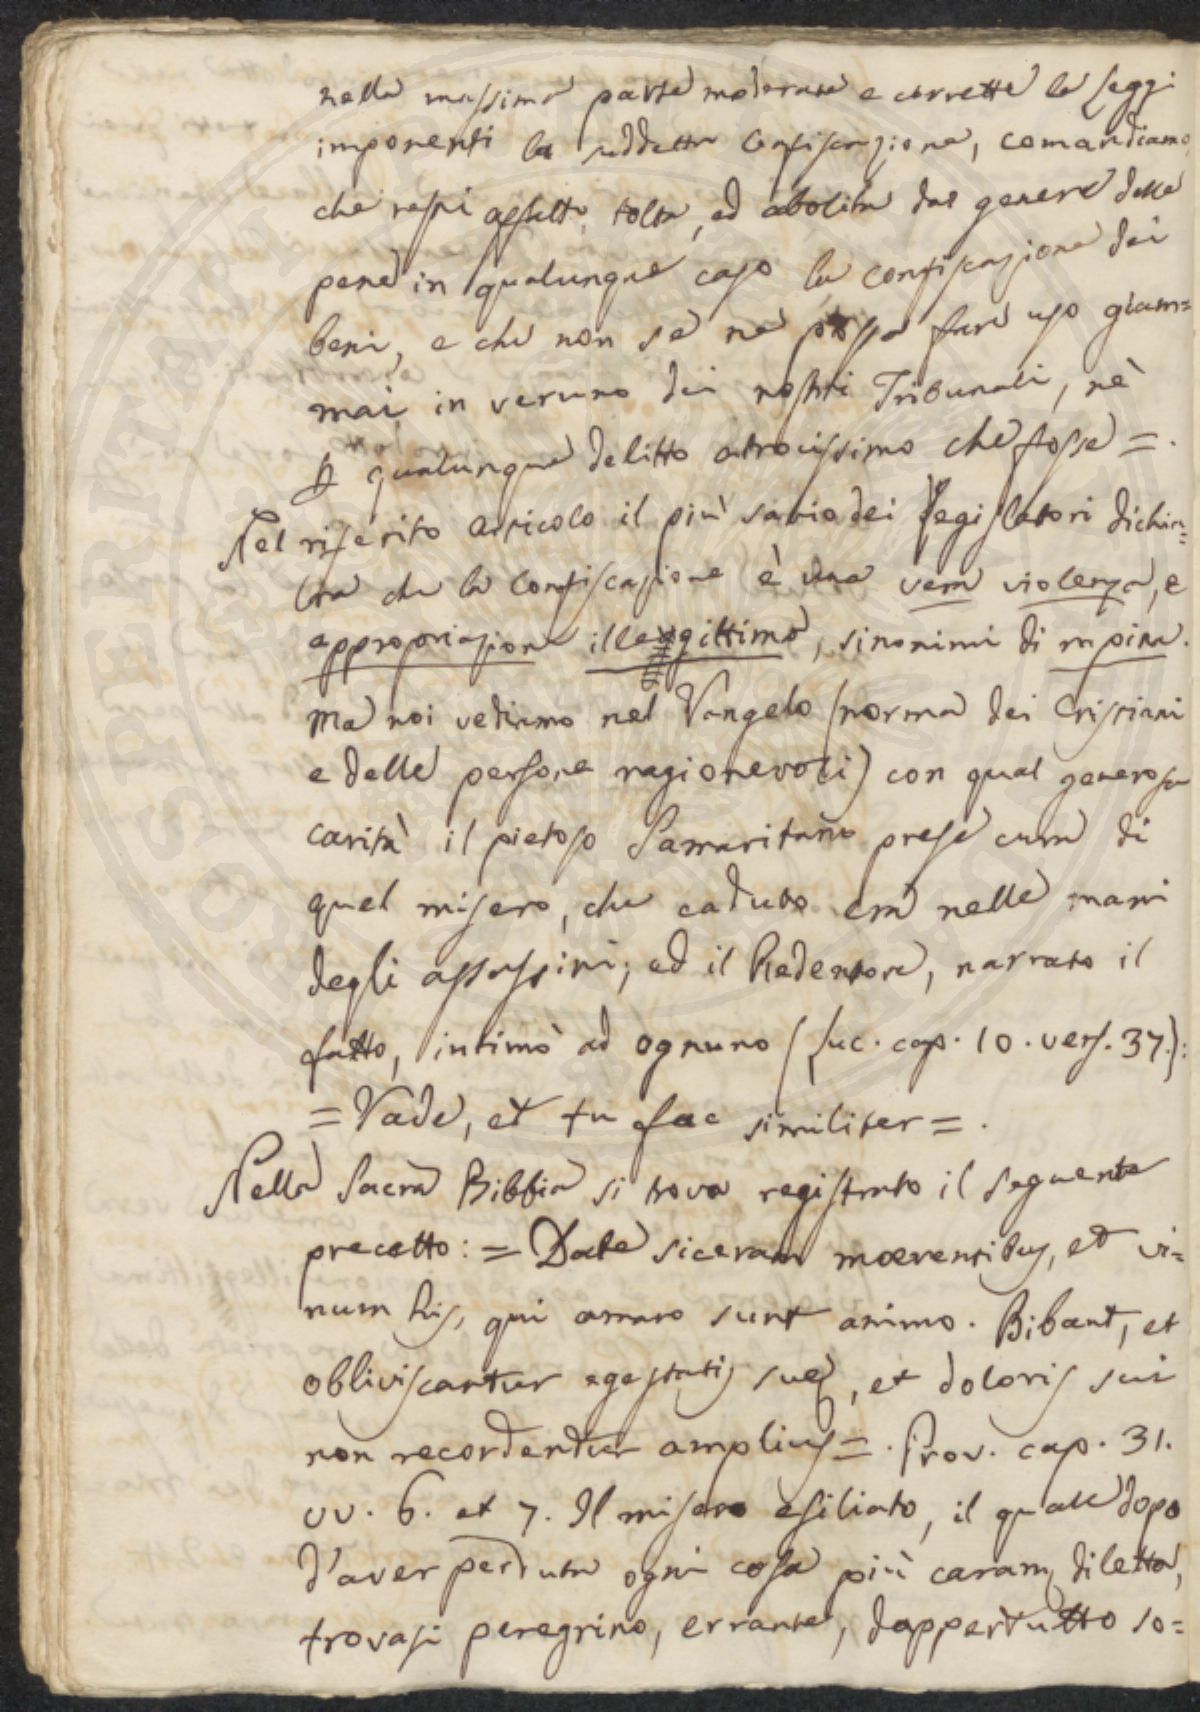 nella massima parte moderate e corrette le Leggi
imponenti la suddetta Confiscazione, comandiamo,
che resti affatto, tolta, ed abolita dal genere delle
pene in qualunque caso la confiscazione dei
beni, e che non se ne possa fare uso giam=
mai in veruno dei nostri Tribunali, nè
p qualunque delitto atrocissimo che fosse =.
Nel riferito articolo il più savio dei Legislatori dichia=
ra che la Confiscazione è una vera violenza, e
appropriazione illeggittima, sinonimi di rapina.
Ma noi vediamo nel Vangelo (norma dei Cristiani
e delle persone ragionevoli) con qual generosa
carità il pietoso Samaritano prese cura di
quel misero, che caduto era nelle mani
degli assassini; ed il Redentore, narrato il
fatto, intimò ad ognuno (Luc. cap. 10. vers. 37.):
= Vade, et tu fac similiter =.
Nella Sacra Bibbia si trova registrato il seguente
precetto: = Date siceram moerentibus, et vi=
num his, qui amaro sunt animo. Bibant, et
obliviscantur egestatis suę, et doloris sui
non recordentur amplius =. Prov. cap. 31.
vv. 6. et 7. Il misero esiliato, il quale dopo
d'aver perduta ogni cosa più caram. diletta,
trovasi peregrino, errante, dappertutto so=